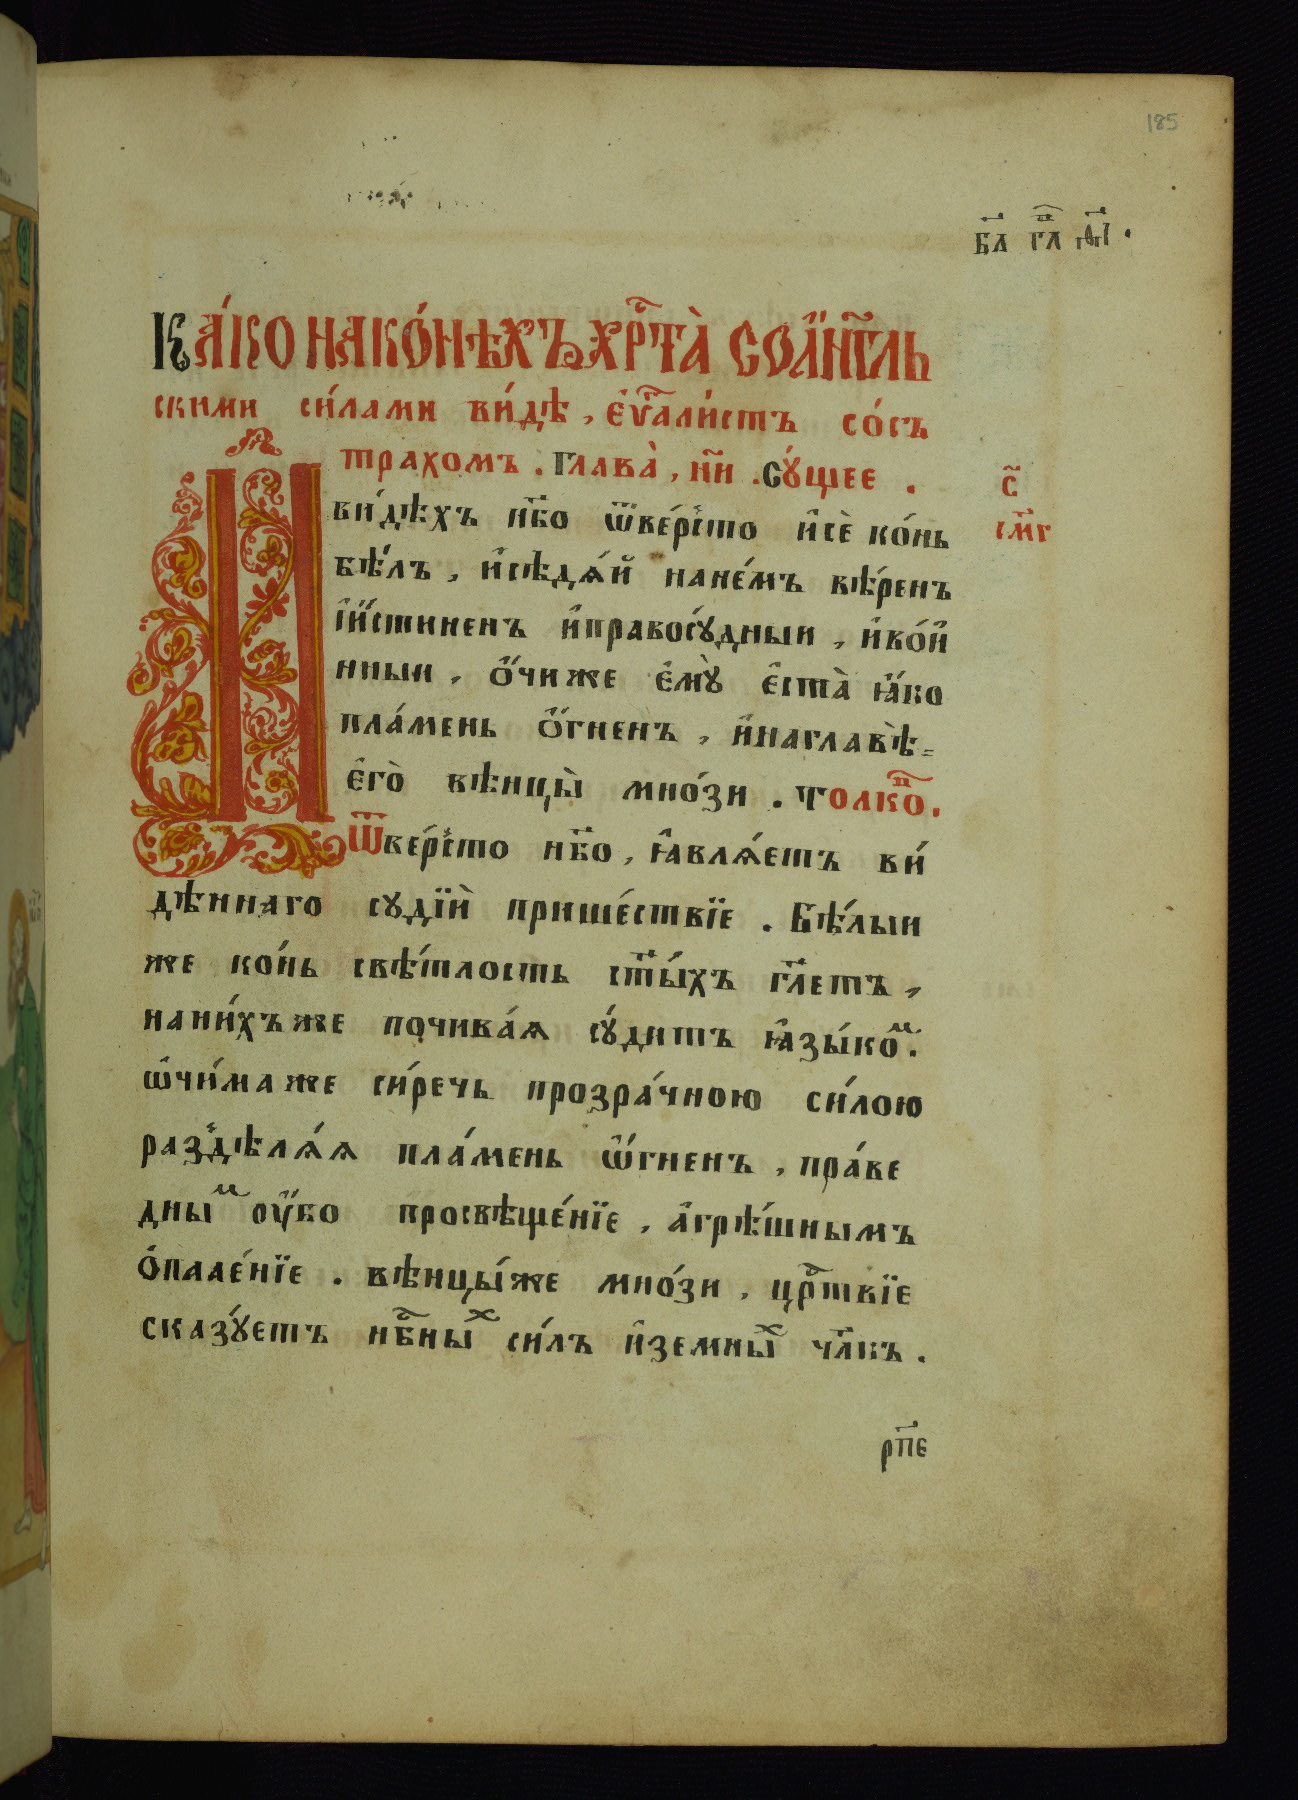 185
Ка́ко нако́нѣхъ хрⷭ҇та̀ со а҆́нг҃ль
скими си́лами ви́дѣ, є҆ѵⷢ҇али́стъ со́съ
трахомъ. Глава̀, н҃и. Сꙋ́щее.
с҃
см҃г
И
ви́дѣхъ нб҃о ѿве́рсто и҆сѐ ко́нь
бѣ́лъ, и҆сѣдѧ́й нане́мъ вѣ́ренъ
і҆и҆́стиненъ и҆правосꙋ́дныи, и҆во́и҆
нныи, ѻ҆́чиже є҆мꙋ̀ є҆ста̀ ꙗ҆́ко
пла́мень ѻ҆́гненъ, и҆наглавѣ̀=
є҆го̀ вѣнцы̀ мно́зи. Толкоⷡ҇.
Ѿве́рсто нб҃о, ꙗ҆влѧ́етъ ви́
дѣннаго сꙋдїѝ прише́ствїе. Бѣ́лыи
же ко́нь свѣ́тлость ст҃ы́хъ гл҃етъ,
нани́хъже почива́ѧ сꙋ́дитъ ꙗ҆зы́коⷨ.
ѡ҆чи́маже си́речь прозра́чною си́лою
раздѣлѧ́ѧ пла́мень ѡ҆́гненъ, пра́ве
дныⷨ оу҆́бо просвѣще́нїе, а҆грѣ́шнымъ
ѻ҆пале́нїе. вѣнцы́же мно́зи, црⷭ҇твїе
сказꙋ́етъ нбⷭ҇ныⷯ си́лъ и҆земныⷯ чл҃къ.
рп҃е